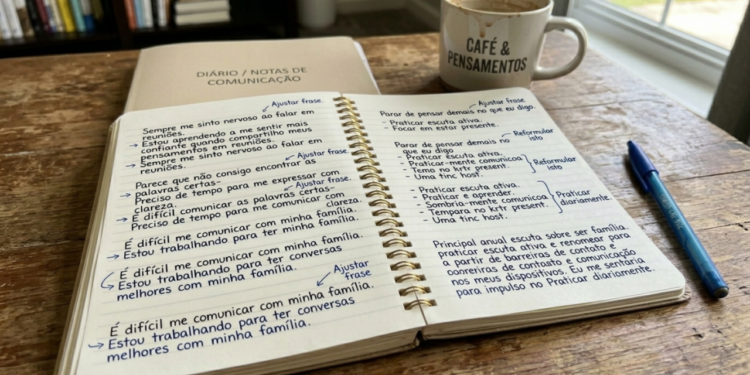 DIÁRIO / NOTAS DE
COMUNICAÇÃO
CAFÉ &
PENSAMENTOS
Ajustar frase.
Sempre me sinto nervoso ao falar em
reuniões.
→ Estou aprendendo a me sentir mais
confiante quando compartilho meus
pensamentos em reuniões.
→ Sempre me sinto nervoso ao falar em
reuniões.
Ajustar frase.
Parece que não consigo encontrar as
→ palavras certas-
Preciso de tempo para me expressar com
clareza.
Ajustar frase.
→ É difícil comunicar as palavras certas-
Preciso de tempo para me comunicar com
clareza.
É difícil me comunicar com minha família.
→ Estou trabalhando para ter minha família.
É difícil me comunicar com minha família.
Estou trabalhando para ter conversas
melhores com minha família.
Ajustar
frase
É difícil me comunicar com minha família.
→ Estou trabalhando para ter conversas
melhores com minha família.
Ajustar frase
Parar de pensar demais no que eu digo.
- Praticar escuta ativa.
- Focar em estar presente.
Reformular
isto
Parar de pensar demais no
que eu digo
- Praticar escuta ativa.
- Praticar-mente comunicoa
- Temo no krtr present.
- Uma tinc host.
Reformular
isto
- Praticar escuta ativa.
- Praticar e aprender.
- Sombria-mente comunicoa
- Tempara no krtc present.
- Uma tinc host.
Praticar
diariamente
Principal anual escuta sobre ser família.
praticar escuta ativa e renomear para
a partir de barreiras de contoto e
conreriras de contosto e comunicação
nos meus dispositivos. Eu me sentaria
para impulso no Praticar diariamente.